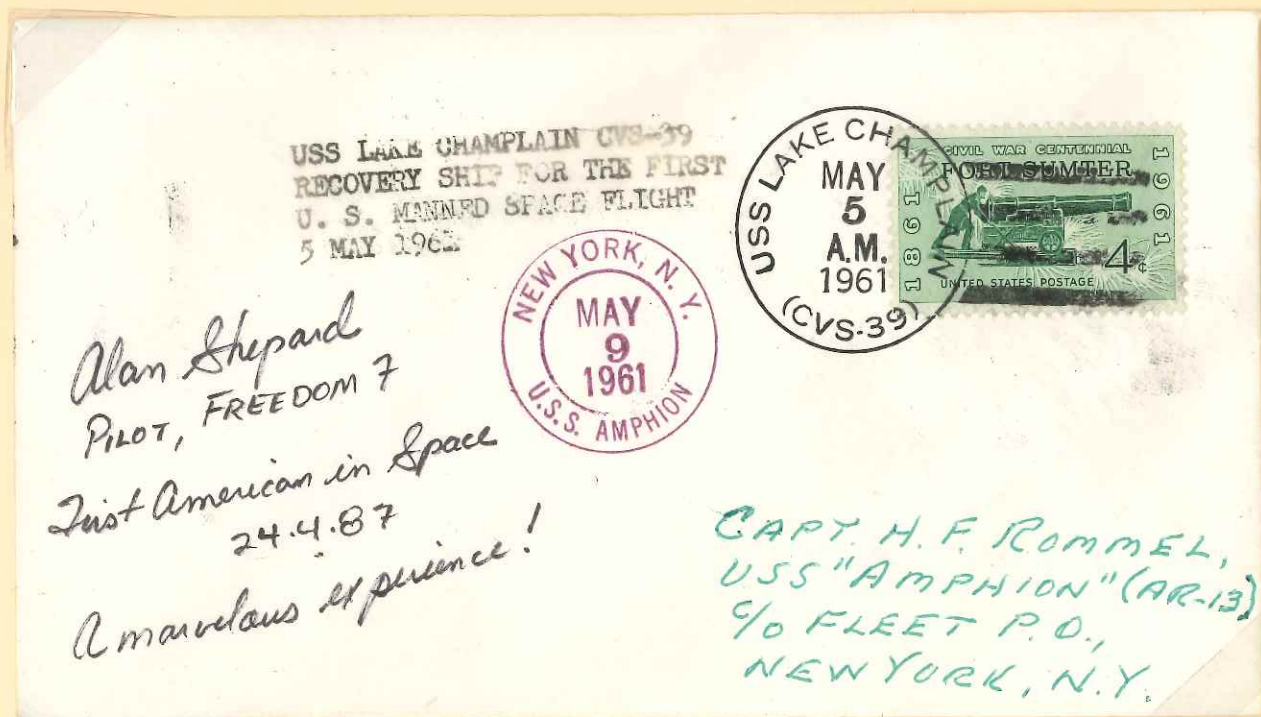 USS LAKE CHAMPLAIN CVS-39
RECOVERY SHIP FOR THE FIRST
U. S. MANNED SPACE FLIGHT
5 MAY 1961
USS LAKE CHAMPLAIN
MAY
5
A.M.
1961
(CVS-39)
CIVIL WAR CENTENNIAL
FORT SUMTER
1861
1961
4¢
UNITED STATES POSTAGE
NEW YORK, N. Y.
MAY
9
1961
U.S.S. AMPHION
Alan Shepard
PILOT, FREEDOM 7
First American in Space
24.4.87
A marvelous experience!
CAPT. H. F. ROMMEL,
USS "AMPHION" (AR-13)
c/o FLEET P.O.,
NEW YORK, N.Y.